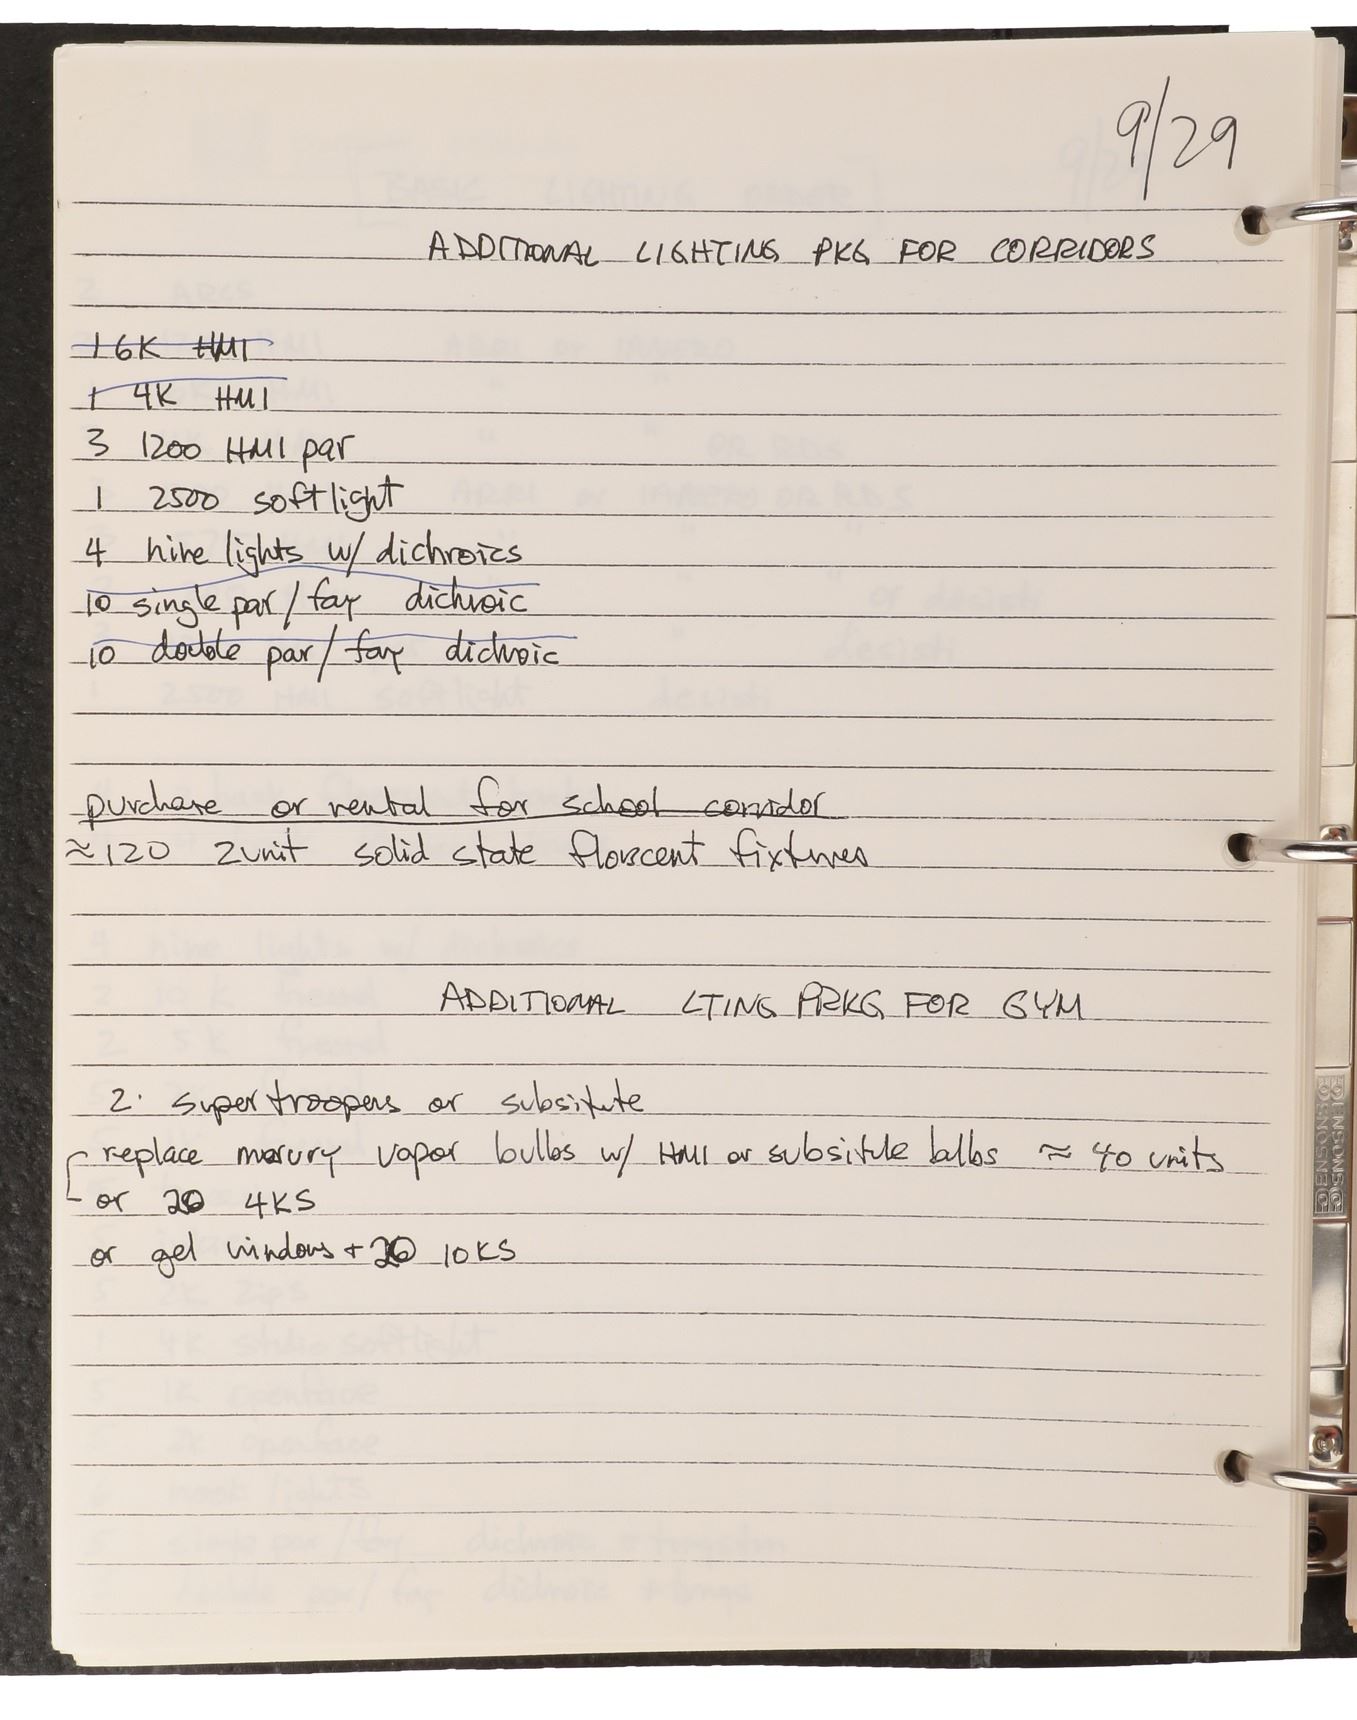 9/29
ADDITIONAL LIGHTING PKG FOR CORRIDORS
1 6K HMI
1 4K HMI
3 1200 HMI par
1 2500 softlight
4 nine lights w/ dichroics
10 single par/fay dichroic
10 double par/fay dichroic
purchase or rental for school corridor
≈120 2unit solid state flourscent fixtures
ADDITIONAL LTING PRKG FOR GYM
2. supertroopers or subsitute
replace mercury vapor bulbs w/ HMI or subsitute bulbs ≈ 40 units
or 20 4KS
or gel windows + 20 10KS
DENSONS
DENSONS